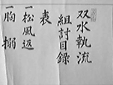 双水執流
組討目録
表
一松風返
一胸搦